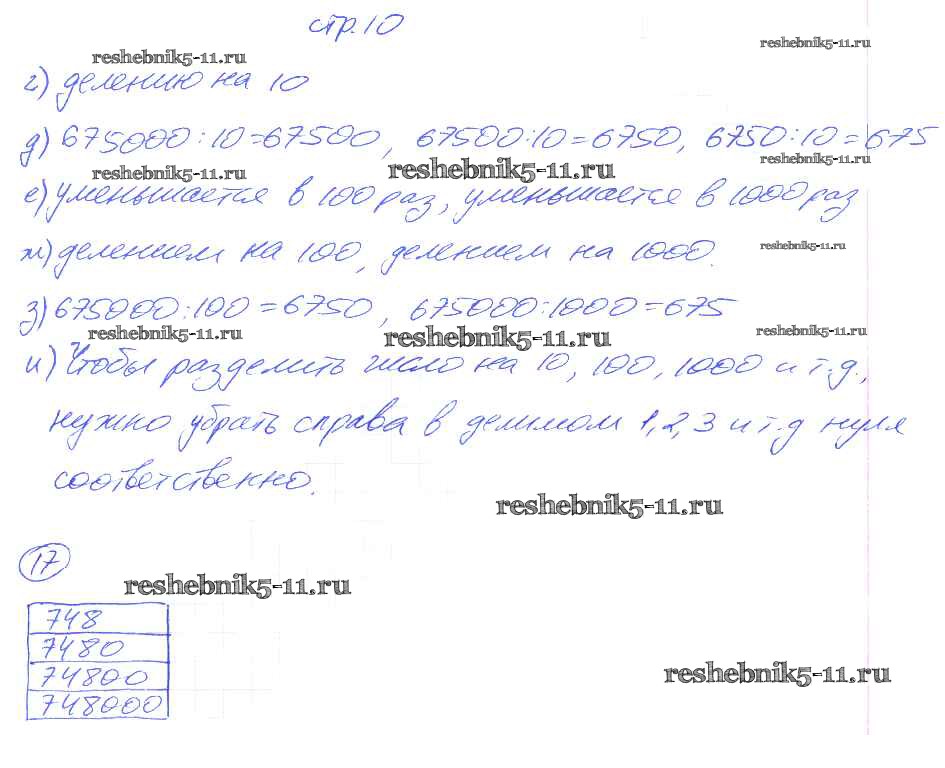 стр. 10
reshebnik5-11.ru
reshebnik5-11.ru
г) делению на 10
д) 675000:10=67500, 67500:10=6750, 6750:10=675
reshebnik5-11.ru
reshebnik5-11.ru
reshebnik5-11.ru
е) уменьшается в 100 раз, уменьшается в 1000 раз
ж) делением на 100, делением на 1000.
reshebnik5-11.ru
з) 675000:100=6750, 675000:1000=675
reshebnik5-11.ru
reshebnik5-11.ru
reshebnik5-11.ru
и) Чтобы разделить число на 10, 100, 1000 и т.д.,
нужно убрать справа в делимом 1, 2, 3 и т.д нуля
соответственно.
reshebnik5-11.ru
17
reshebnik5-11.ru
748
7480
74800
748000
reshebnik5-11.ru